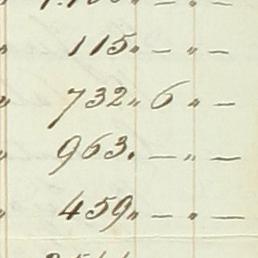 " 115 " — " —
" 732 " 6 " —
" 963 . — " —
" 459 " — " —